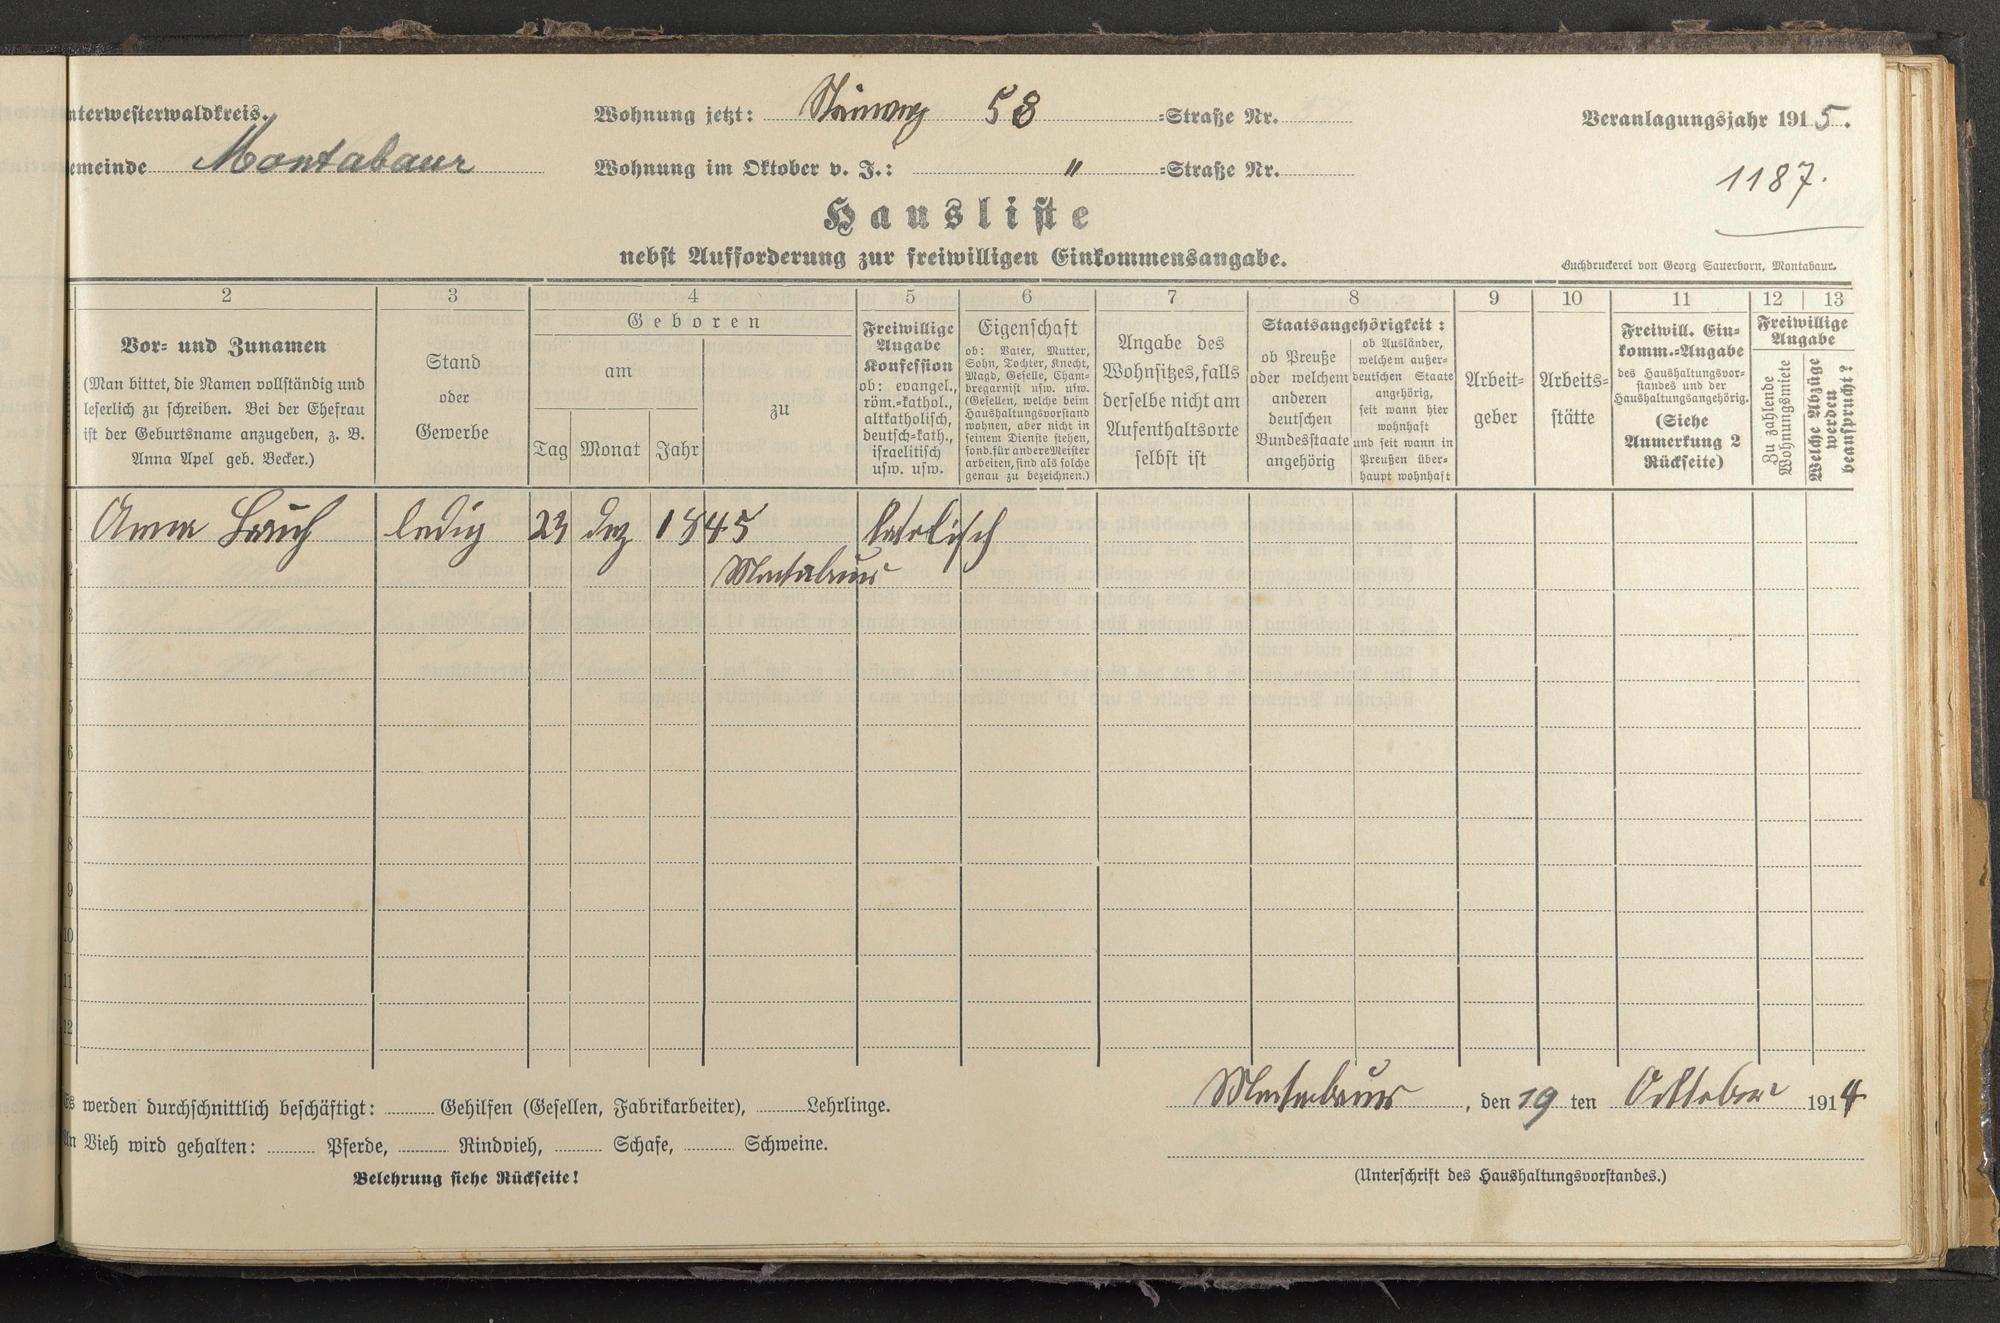 nterwesterwaldkreis.
Wohnung jetzt: 58 =Straße Nr.
Veranlagungsjahr 1915.
emeinde Montabaur
Wohnung im Oktober v. J.: " =Straße Nr.
1187.
Hausliste
nebst Aufforderung zur freiwilligen Einkommensangabe.
Buchdruckerei von Georg Sauerborn, Montabaur.
2
3
4
5
6
7
8
9
10
11
12
13
Vor= und Zunamen
(Man bittet, die Namen vollständig und
leserlich zu schreiben. Bei der Ehefrau
ist der Geburtsname anzugeben, z. B.
Anna Apel geb. Becker.)
Stand
oder
Gewerbe
Geboren
am
Tag
Monat
Jahr
zu
Freiwillige
Angabe
Konfession
ob: evangel.,
röm.=kathol.,
altkatholisch,
deutsch=kath.,
israelitisch
usw. usw.
Eigenschaft
ob: Vater, Mutter,
Sohn, Tochter, Knecht,
Magd, Geselle, Cham=
bregarnist usw. usw.
(Gesellen, welche beim
Haushaltungsvorstand
wohnen, aber nicht in
seinem Dienste stehen,
sond. für andere Meister
arbeiten, sind als solche
genau zu bezeichnen.)
Angabe des
Wohnsitzes, falls
derselbe nicht am
Aufenthaltsorte
selbst ist
Staatsangehörigkeit:
ob Preuße
oder welchem
anderen
deutschen
Bundesstaate
angehörig
ob Ausländer,
welchem außer=
deutschen Staate
angehörig,
seit wann hier
wohnhaft
und seit wann in
Preußen über=
haupt wohnhaft
Arbeit=
geber
Arbeits=
stätte
Freiwill. Ein=
komm.=Angabe
des Haushaltungsvor=
standes und der
Haushaltungsangehörig.
(Siehe
Anmerkung 2
Rückseite)
Freiwillige
Angabe
Zu zahlende
Wohnungsmiete
Welche Abzüge
werden
beansprucht?
1 Anna ledig 23 Dez 1845 katolisch
2 Montabaur
3
4
5
6
7
8
9
10
11
12
Es werden durchschnittlich beschäftigt: Gehilfen (Gesellen, Fabrikarbeiter), Lehrlinge.
Montabaur, den 19 ten Oktober 1914
An Vieh wird gehalten: Pferde, Rindvieh, Schafe, Schweine.
Belehrung siehe Rückseite!
(Unterschrift des Haushaltungsvorstandes.)